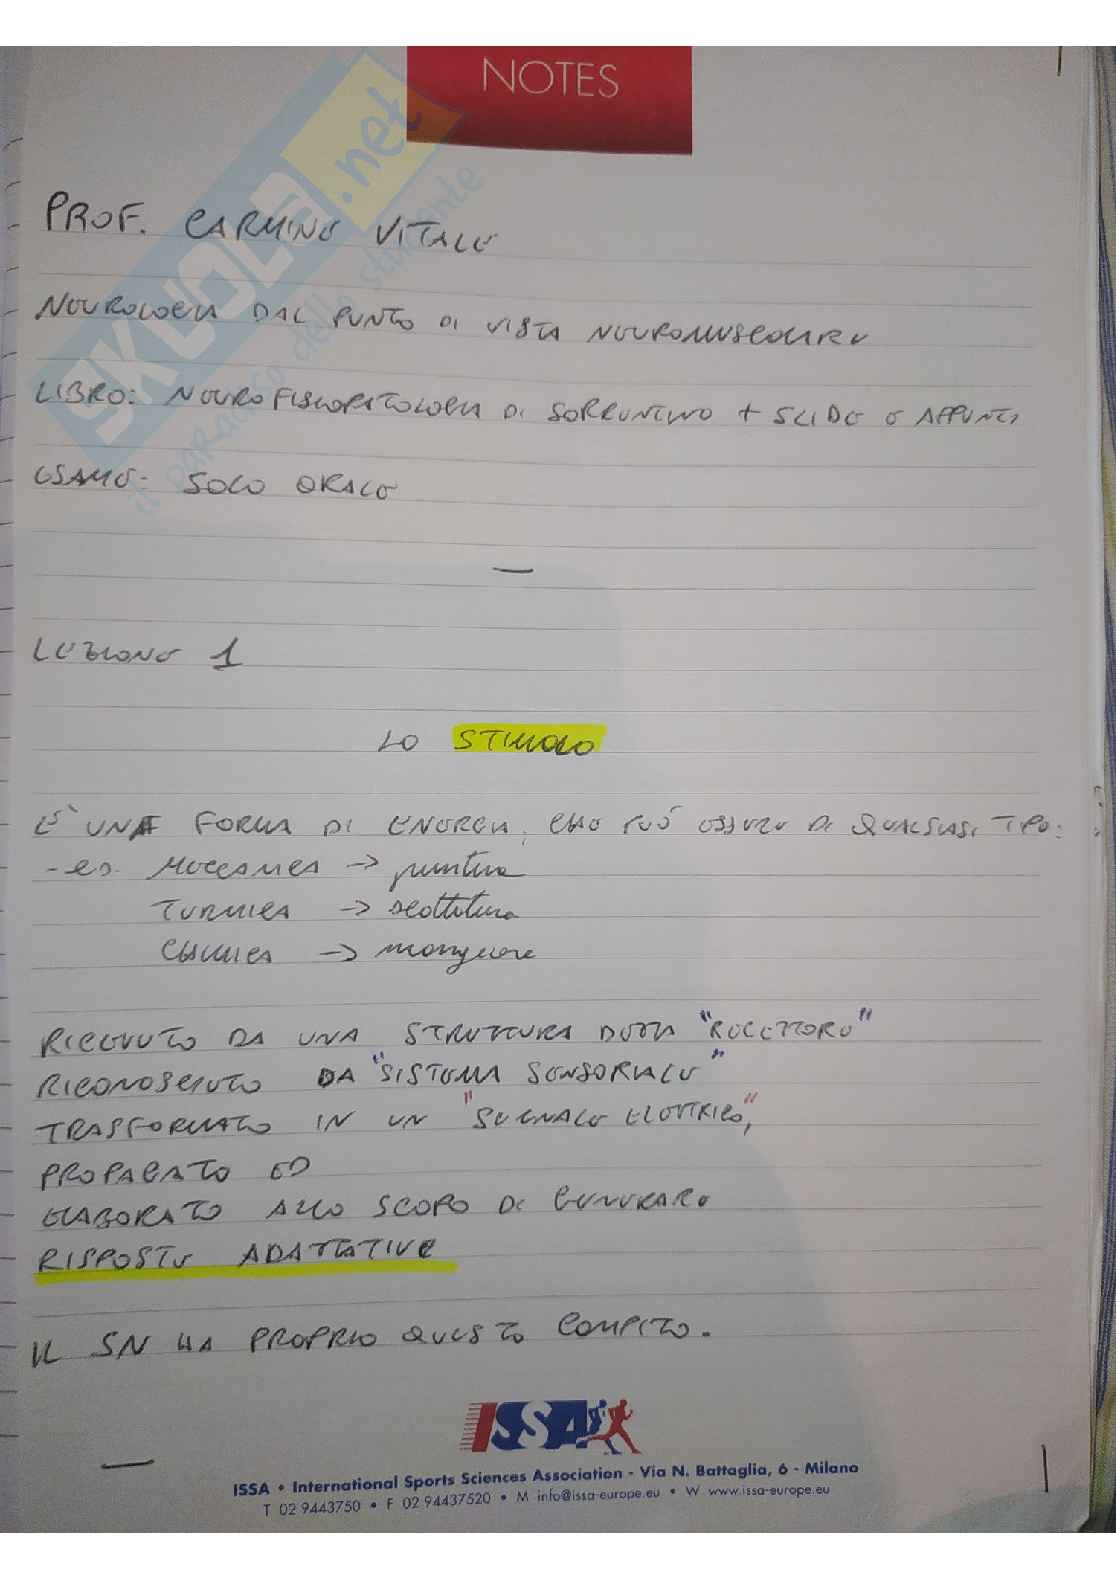 NOTES
SKUOLA.net
il paradiso dello studente
PROF. CARMINE VITALE
NEUROLOGIA DAL PUNTO DI VISTA NEUROMUSCOLARE
LIBRO: NEUROFISIOPATOLOGIA DI SORRENTINO + SLIDE E APPUNTI
ESAME: SOLO ORALE
LEZIONE 1
LO STIMOLO
È UNA FORMA DI ENERGIA, CHE PUÓ ESSERE DI QUALSIASI TIPO:
- es. MECCANICA -> puntura
TERMICA -> scottatura
CHIMICA -> mangiare
RICEVUTO DA UNA STRUTTURA DETTA "RECETTORE"
RICONOSCIUTO DA "SISTEMA SENSORIALE"
TRASFORMATO IN UN "SEGNALE ELETTRICO",
PROPAGATO ED
ELABORATO ALLO SCOPO DI GENERARE
RISPOSTE ADATTATIVE
IL SN HA PROPRIO QUESTO COMPITO.
ISSA
ISSA • International Sports Sciences Association - Via N. Battaglia, 6 - Milano
T 02 9443750 • F 02 94437520 • M info@issa-europe.eu • W www.issa-europe.eu